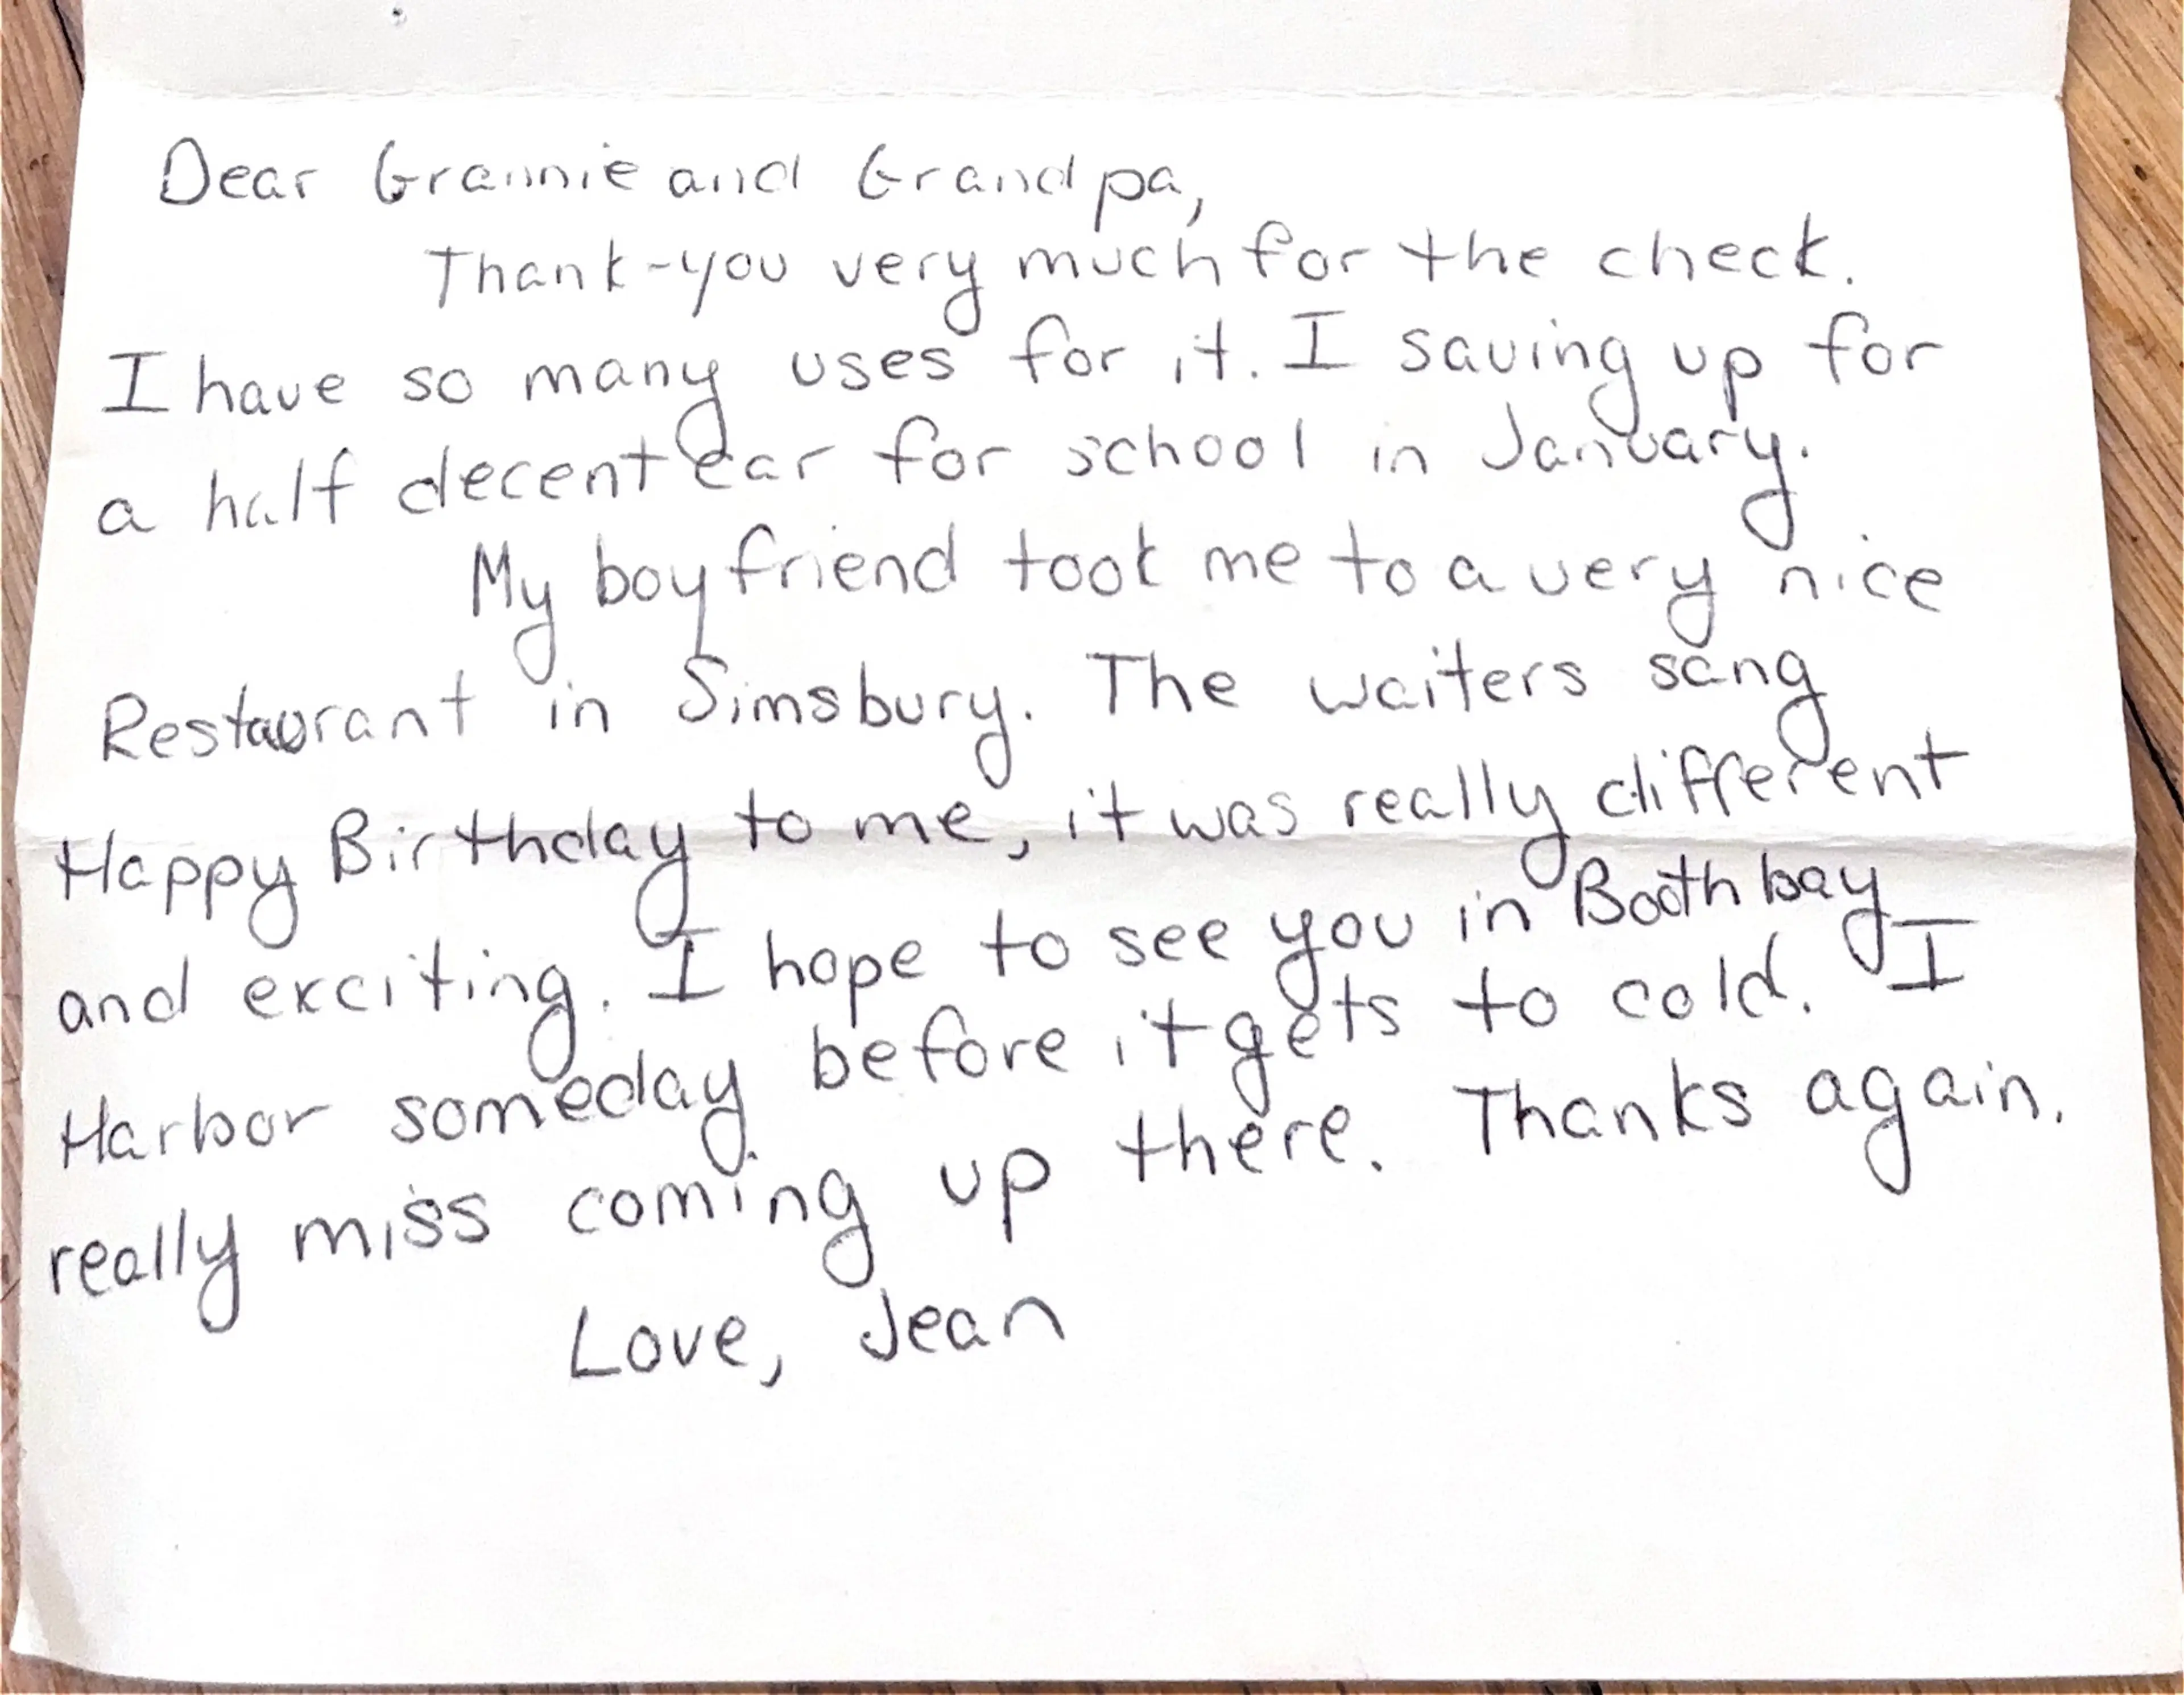 Dear Grannie and Grandpa,
Thank-you very much for the check.
I have so many uses for it. I saving up for
a half decent car for school in January.
My boyfriend took me to a very nice
Restaurant in Simsbury. The waiters sang
Happy Birthday to me, it was really different
and exciting. I hope to see you in Boothbay
Harbor someday before it gets to cold. I
really miss coming up there. Thanks again.
Love, Jean